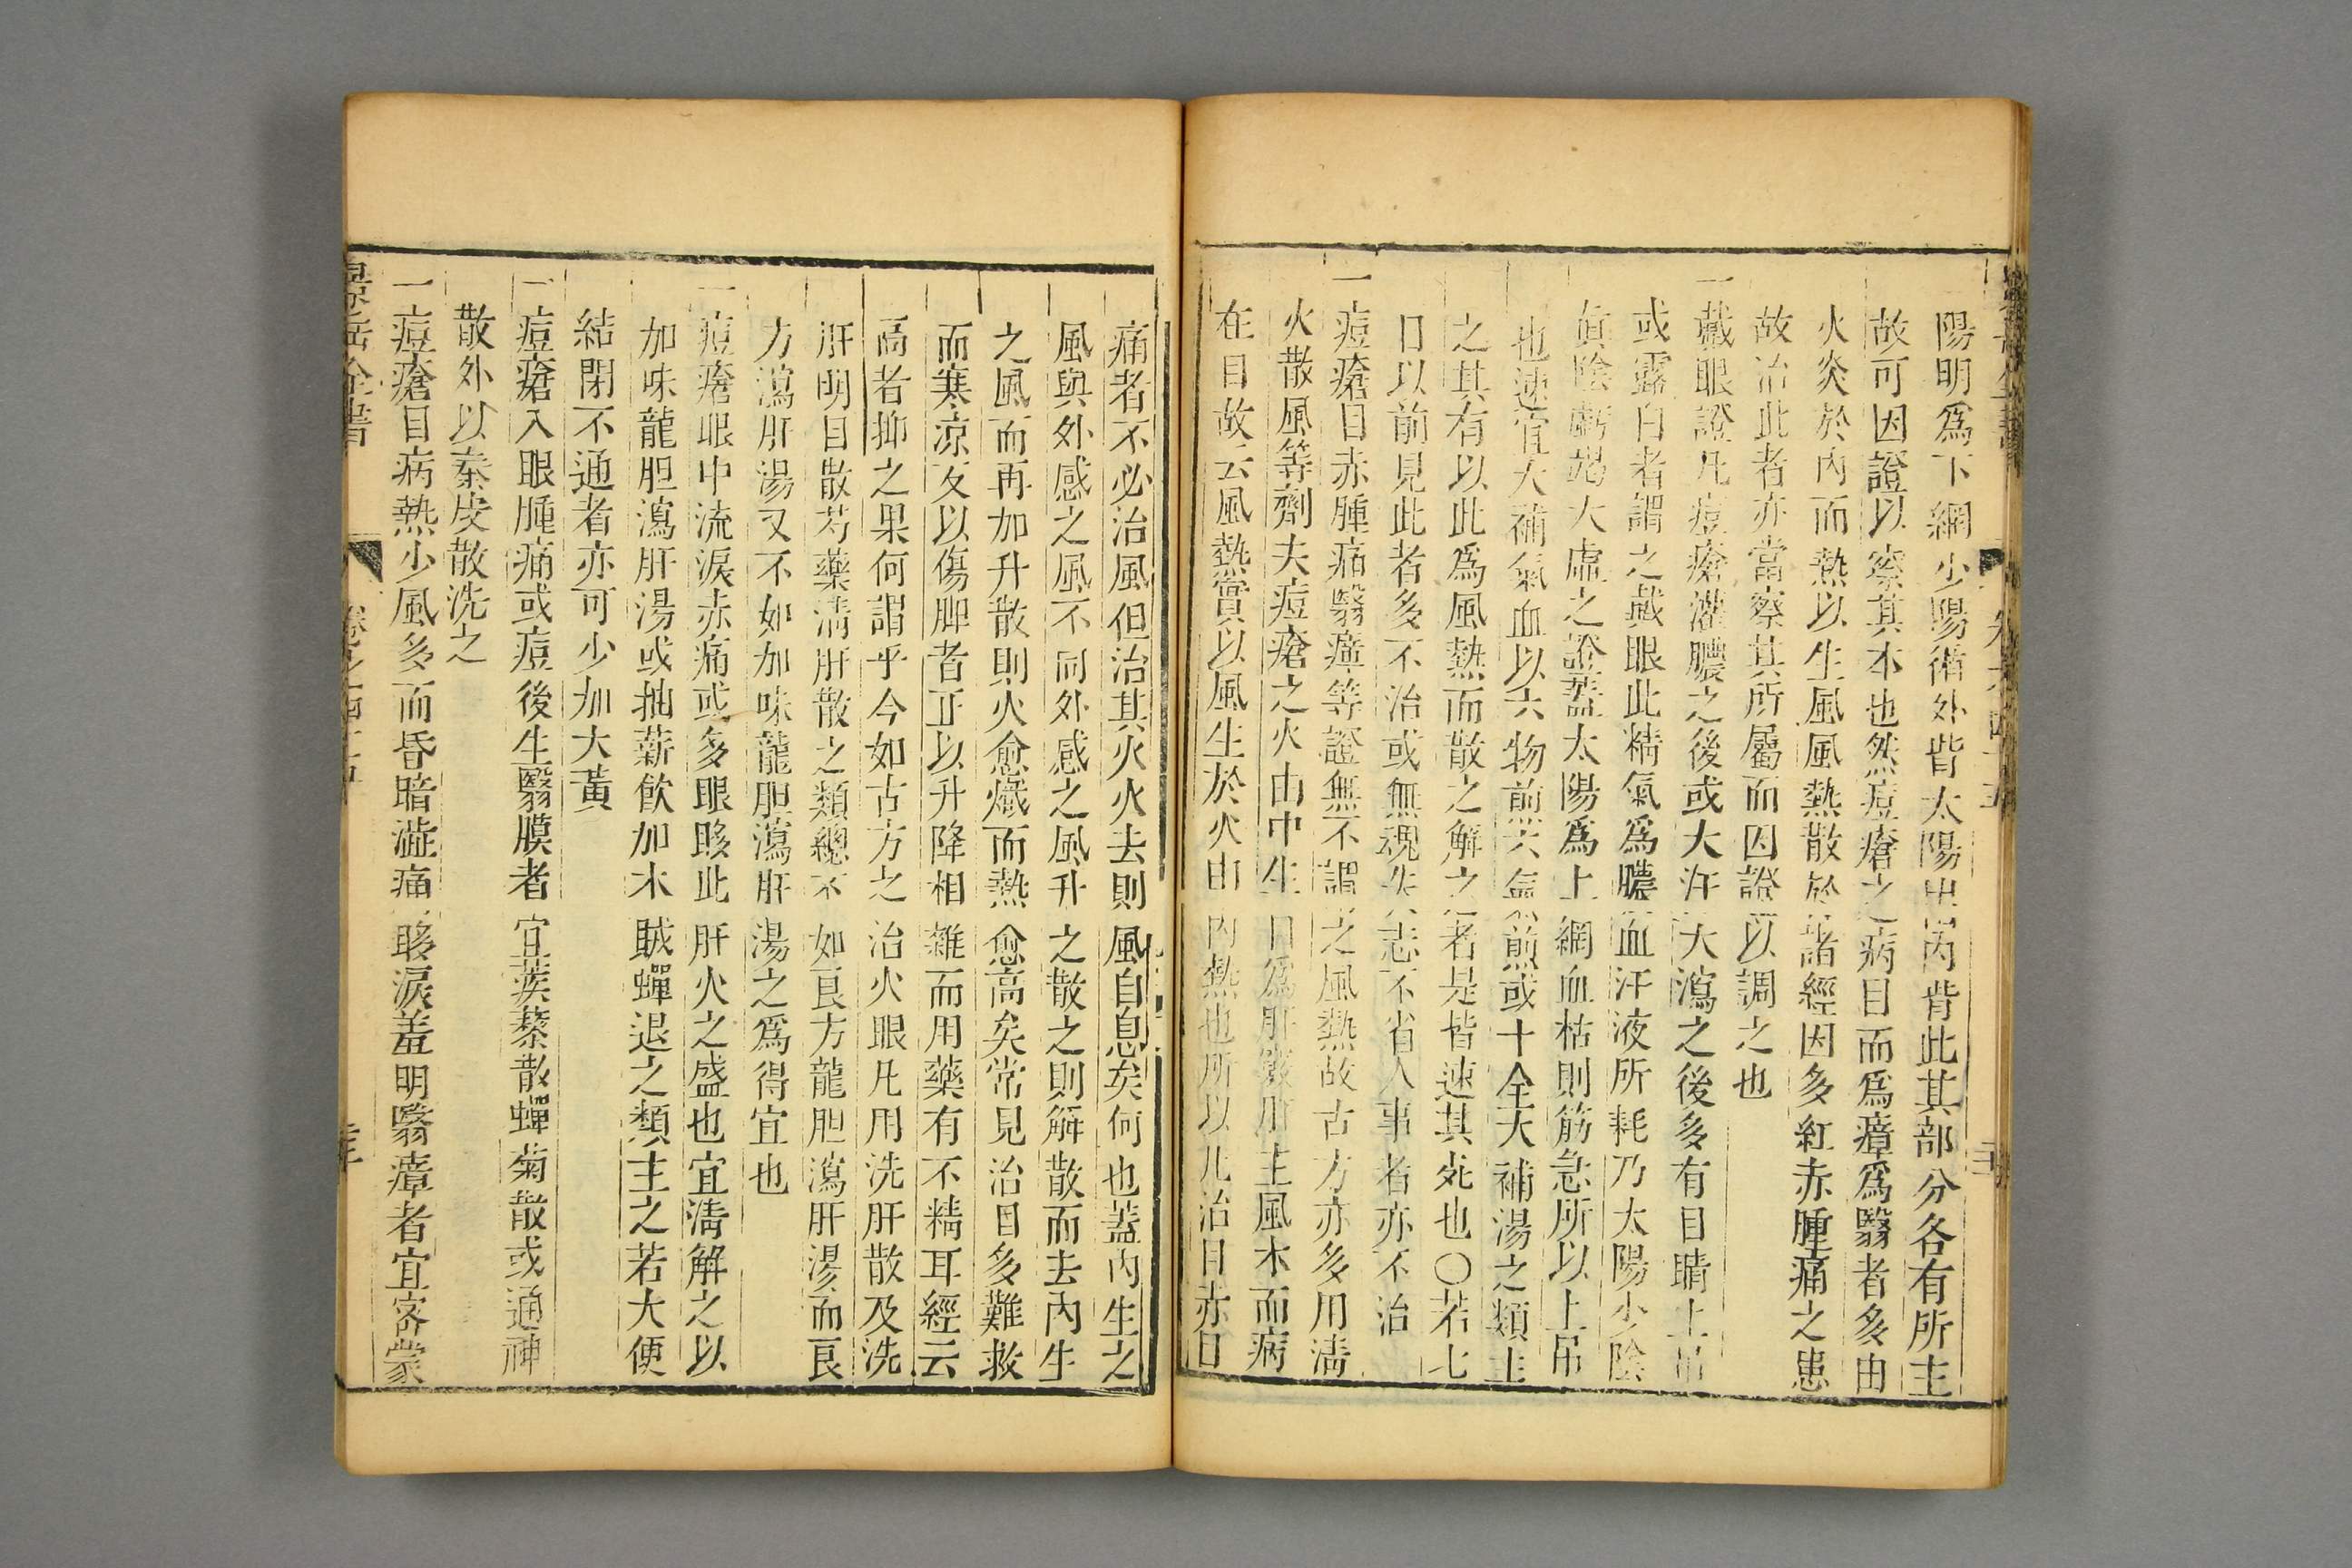 陽明爲下網少陽循外眥太陽出內眥此其部分各有所主
故可因證以察其本也然痘瘡之病目而爲瘴爲翳者多由
火炎於內而熱以生風風熱散於諸經因多紅赤腫痛之患
故治此者亦當察其所屬而因證以調之也
一戴眼證凡痘瘡灌膿之後或大汗大瀉之後多有目睛上吊
或露白者謂之戴眼此精氣爲膿血汗液所耗乃太陽少陰
眞陰虧竭大虛之證蓋太陽爲上網血枯則筋急所以上吊
也速宜大補氣血以六物煎六氣煎或十全大補湯之類主
之其有以此爲風熱而散之解之者是皆速其死也〇若七
日以前見此者多不治或無魂失志不省人事者亦不治
一痘瘡目赤腫痛翳瘴等證無不謂之風熱故古方亦多用淸
火散風等劑夫痘瘡之火由中生目爲肝竅肝主風木而病
在目故云風熱實以風生於火由內熱也所以凡治目赤目
痛者不必治風但治其火火去則風自息矣何也蓋內生之
風與外感之風不同外感之風升之散之則解散而去內生
之風而再加升散則火愈熾而熱愈高矣常見治目多難救
而寒涼反以傷脾者正以升降相雜而用藥有不精耳經云
高者抑之果何謂乎今如古方之治火眼凡用洗肝散及洗
肝明目散芍藥淸肝散之類總不如良方龍胆瀉肝湯而良
方瀉肝湯又不如加味龍胆瀉肝湯之爲得宜也
一痘瘡眼中流淚赤痛或多眼眵此肝火之盛也宜淸解之以
加味龍胆瀉肝湯或抽薪飮加木賊蟬退之類主之若大便
結閉不通者亦可少加大黃
一痘瘡入眼腫痛或痘後生翳膜者宜蒺藜散蟬菊散或通神
散外以秦皮散洗之
一痘瘡目病熱少風多而昏暗澁痛眵淚羞明翳瘴者宜密蒙
景岳全書
卷之四十五